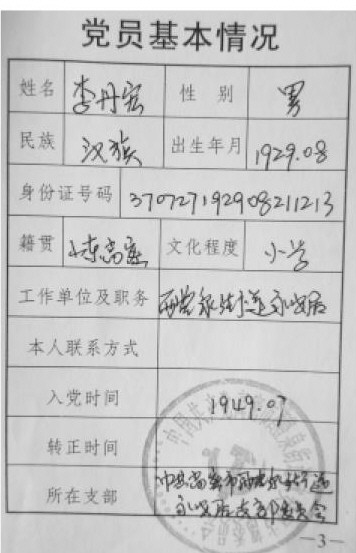 党员基本情况
姓名 李丹宏 性别 男
民族 汉族 出生年月 1929.08
身份证号码 370727192908211213
籍贯 山东高密 文化程度 小学
工作单位及职务
本人联系方式
入党时间 1949.07
转正时间
所在支部 中共高密市
支部委员会
—3—